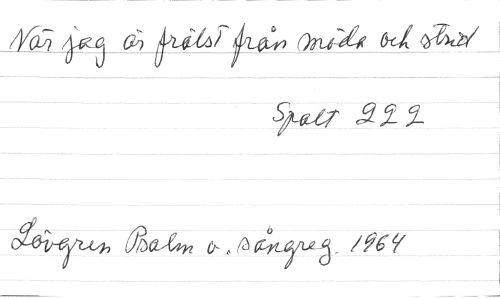 När jag är frälst från möda och strid
Spalt 222
Lövgren Psalm o. sångreg. 1964